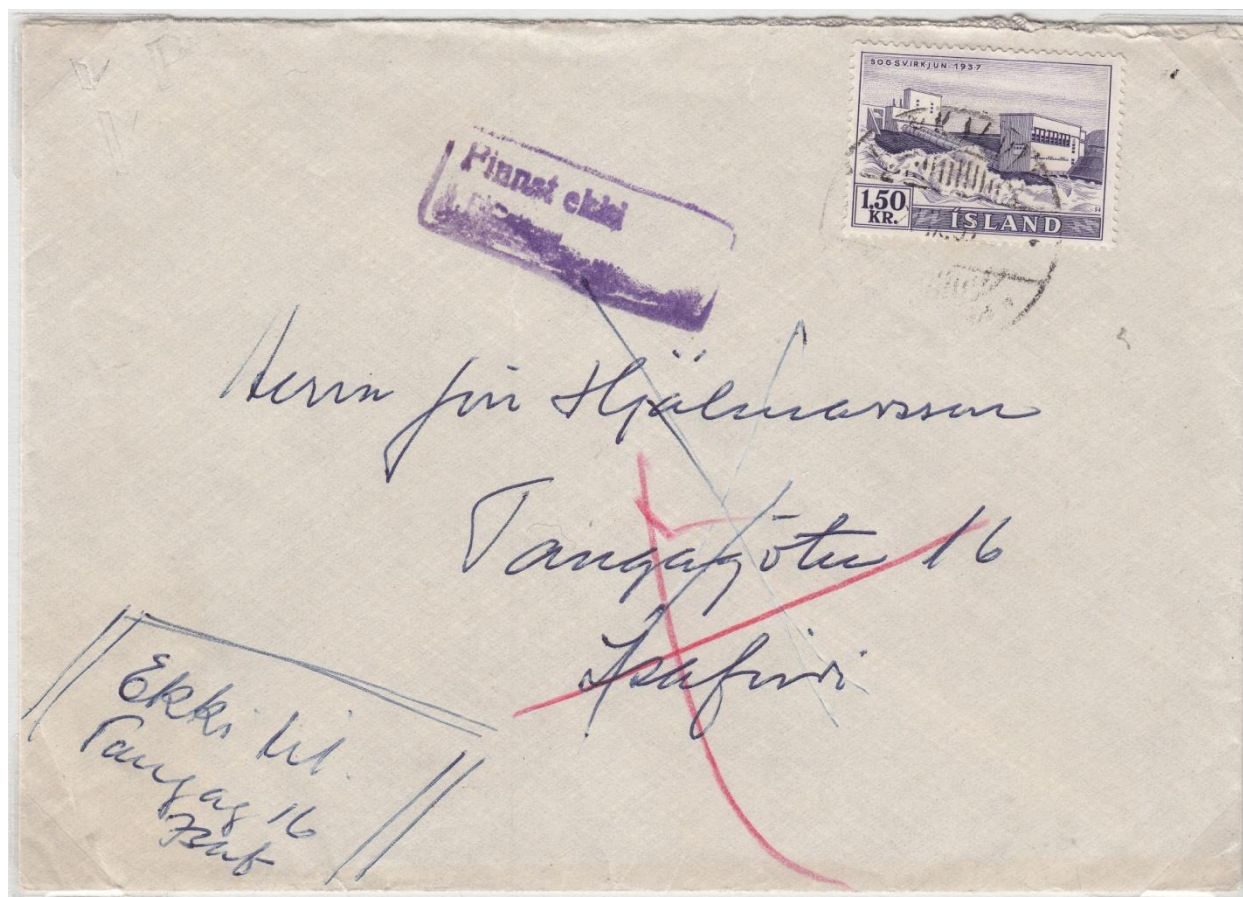 SOGSVIRKJUN 1937
1.50
KR.
ÍSLAND
Finnst ekki
Herrn Jón Hjälmarsson
Tangagötu 16
Isafirdi
Ekki til.
Tangag 16
Isaf